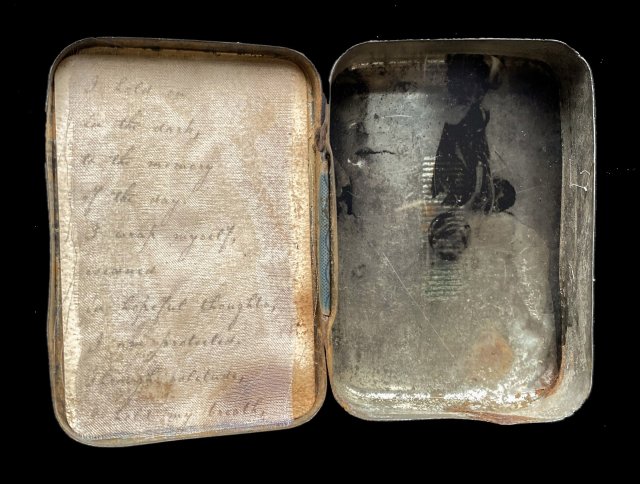 I hold on
in the dark,
to the memory
of the day.
I wrap myself,
in hopeful thoughts,
I am protected,
solitude,
I hold my breath,